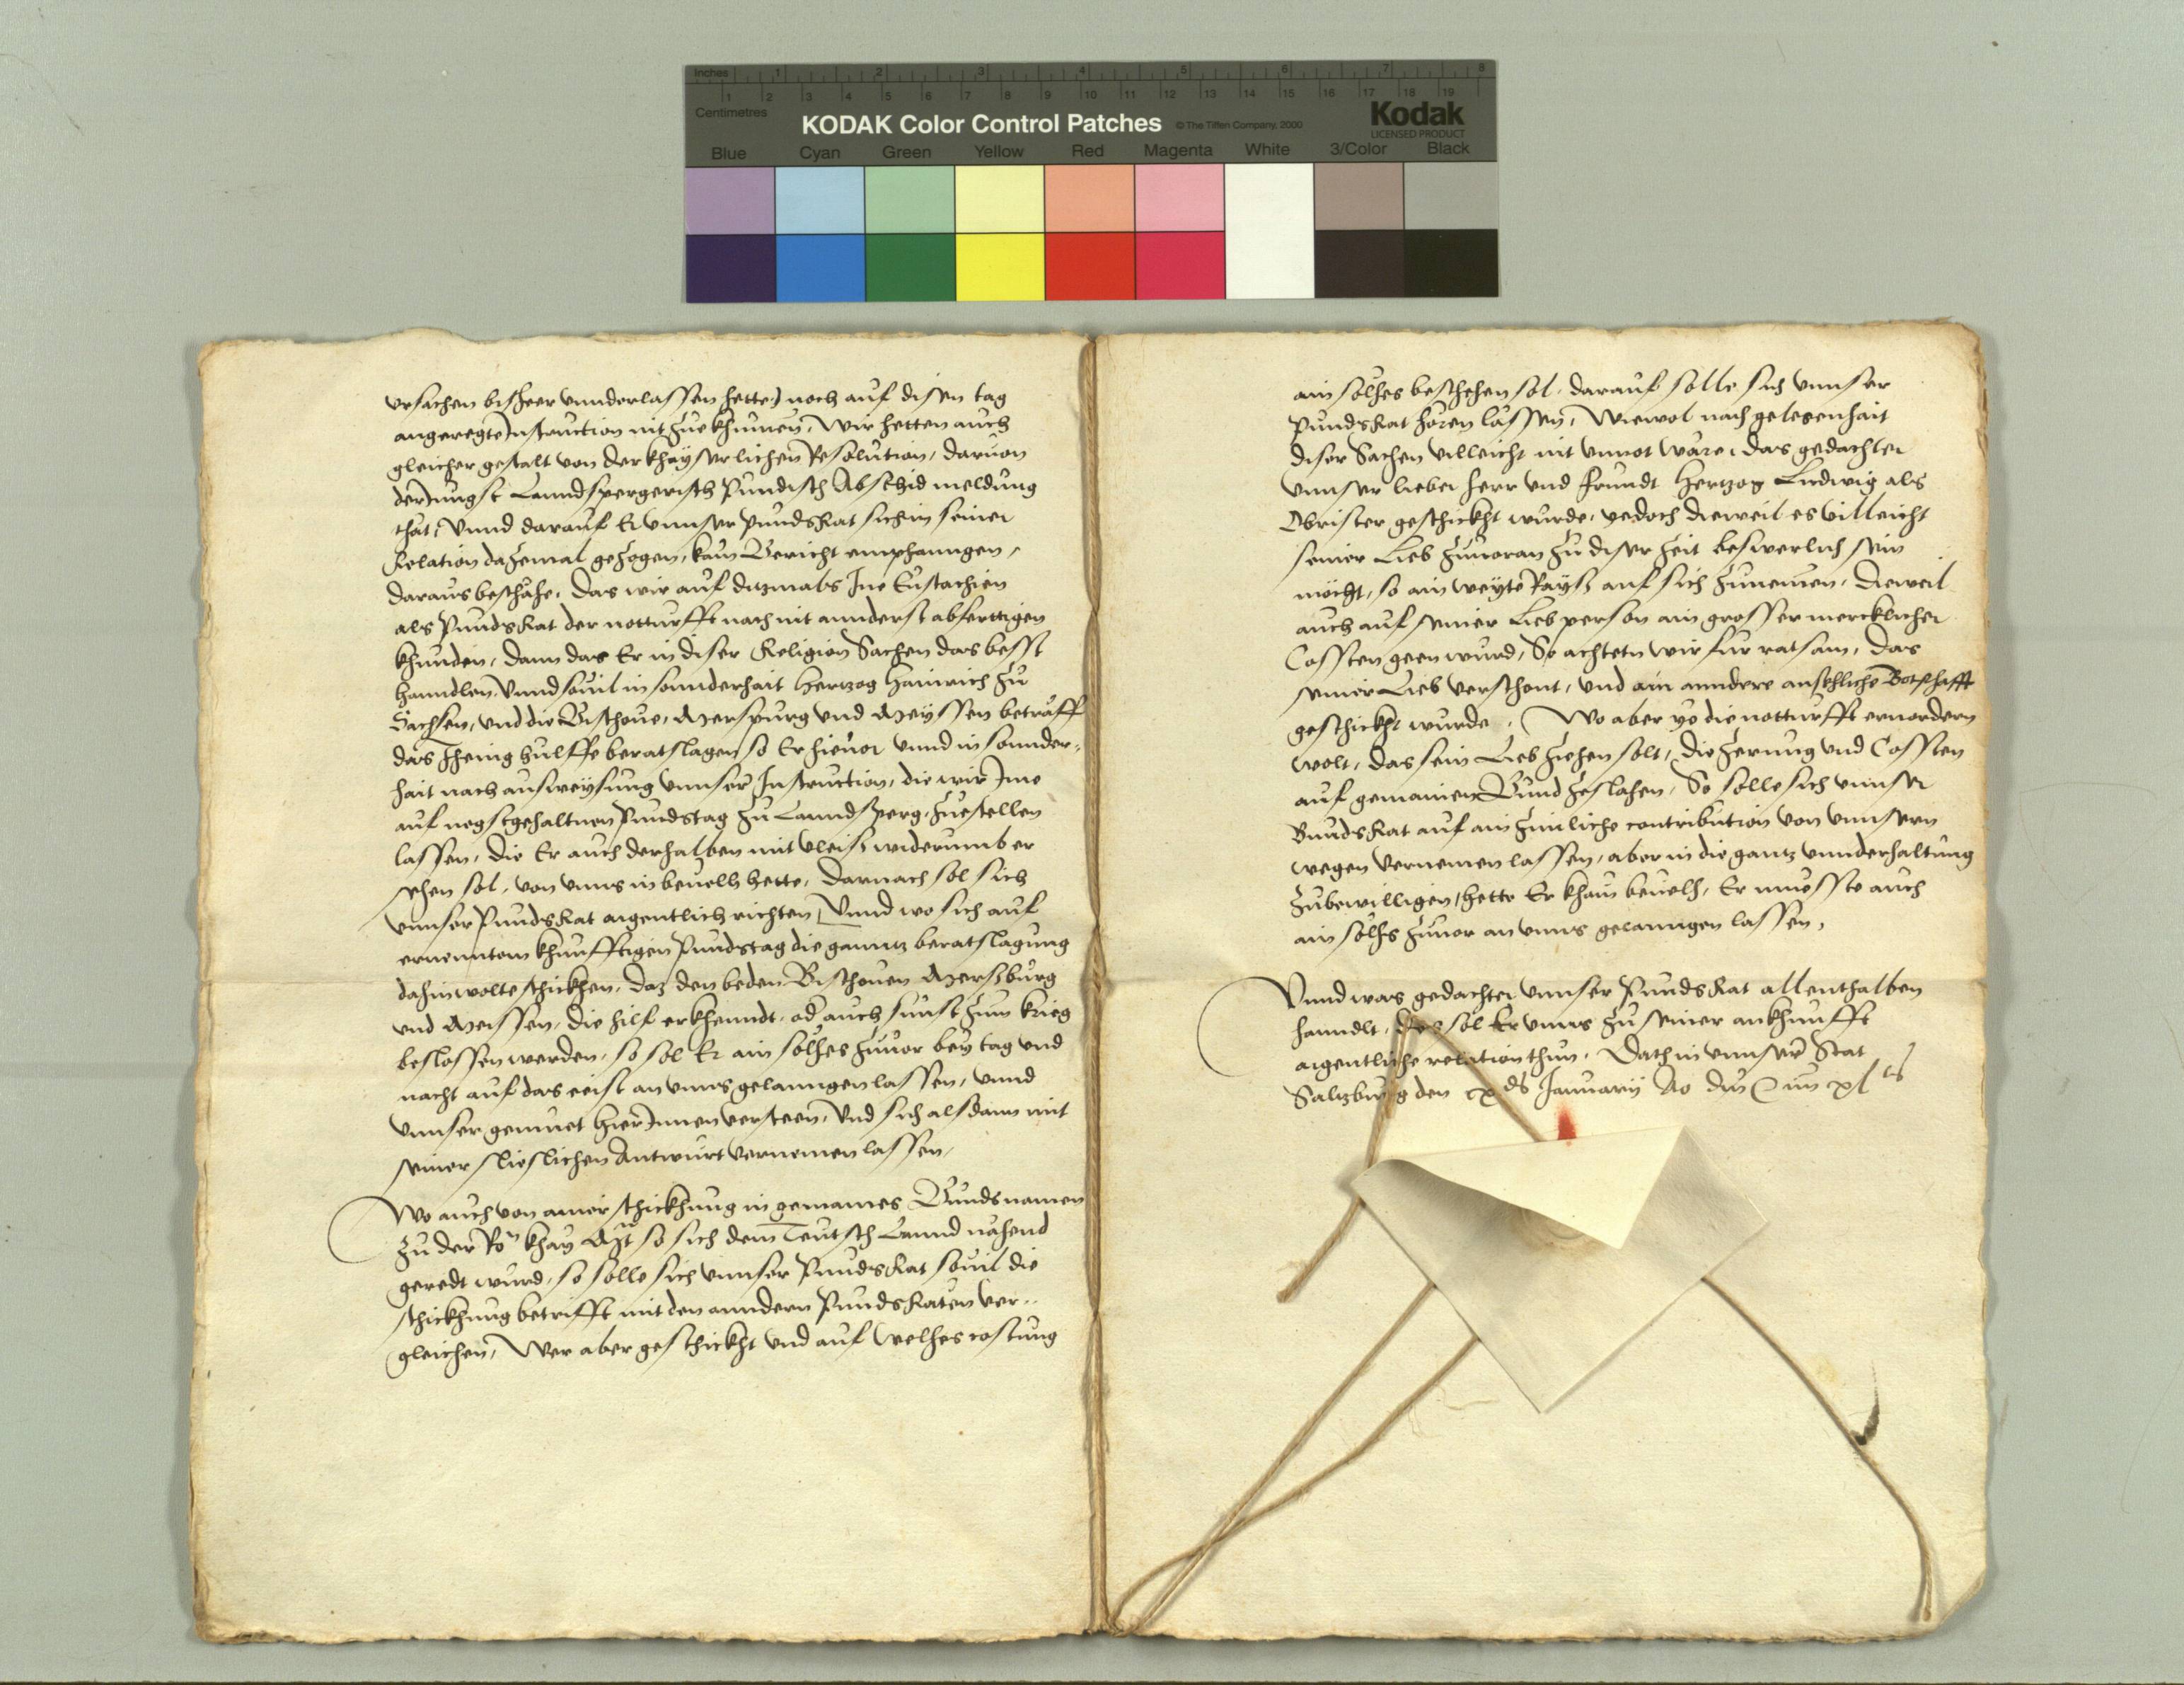 Inches 1 2 3 4 5 6 7 8
1 2 3 4 5 6 7 8 9 10 11 12 13 14 15 16 17 18 19
Centimetres
KODAK Color Control Patches © The Tiffen Company, 2000 Kodak
LICENSED PRODUCT
Blue Cyan Green Yellow Red Magenta White 3/Color Black
ursachen bisheer unnderlassen hette) noch auf disen tag
angeregte Instruction nit zuekhumen, Wir hetten auch
gleicher gestalt von der khayserlichen Resolution, daruon
der Jungst Lanndspergerisch Pundisch Abschid meldung
thut, Unnd darauf Er unnser Pundsrat sich in seiner
Relation dazemal gezogen, kain Bericht emphanngen,
daraus beschähe, das wir auf ditzmals Ine Eustachien
als Pundsrat der notturfft nach nit annderst abferttigen
khunden, dann das Er in diser Religion Sachen das besst
hanndlen, Unnd souil in sonnderhait Hertzog Hainrich zu
Sachsen, und die Bischoue, Merspurg und Meyssen betrifft
das Jhenig hulffe beratslagen, so Er hieuor unnd in sonnder-
hait nach ausweysung unnser Instruction, die wir Ime
auf negstgehaltnen Pundstag zu Lanndsperg, zuestellen
lassen, die Er auch derhalben mit vleis widerumb er
sehen sol, von unns in beuelh hette, Darnach sol sich
unnser Pundsrat aigentlich richten, Unnd wo sich auf
ernenntem khunfftigen Pundstag die ganntz beratslagung
dahin wolte schickhen, daz den beden Bischouen Mersburg
und Meissen, die hilf erkhenndt, od auch sunst zum krieg
beslossen werden, so sol Er ain solhes zuuor bey tag und
nacht auf das eeist an unns gelanngen lassen, unnd
unnser gemuet hierInnen versteen, Und sich alsdann mit
seiner slieslichen Antwurt vernemen lassen,
Wo auch von ainer schickhung in gemaines Bunds namen
zu der Ro khay Mt so sich dem Teutsch Lannd nahend
geredt wurd, so solle sich unnser Pundsrat souil die
schickhung betrifft mit den anndern Pundsräten ver-
gleichen, Wer aber geschickht und auf welhes costung
ain solhes beschehen sol, darauf solle sich unnser
Pundsrat hören lassen, Wiewol nach gelegenhait
diser Sachen villeicht nit unnot wäre, das gedachter
unnser lieber herr und frundt Hertzog Ludwig als
Obrister geschickht wurde, yedoch dieweil es villeicht
seiner Lieb zuuoran zu diser zeit beswerlich sein
möcht, so ain weyte Rays auf sich zunemen, dieweil
auch auf seiner Lieb person ain grosser mercklicher
Cossten geen wurd, So achteten wir fur ratsam, das
seiner Lieb verschont, und ain anndere ansehliche Botschafft
geschickht wurde, Wo aber ye die notturfft eruordern
wolt, das sein Lieb ziehen solt, die zerung und Cossten
auf gemainen Bund zeslahen, So solle sich unnser
Bundsrat auf ain zimliche contribution von unnsern
wegen vernemen lassen, aber in die gantz unnderhaltung
zubewilligen, hette Er khain beuelh, Er muesste auch
ain solhs zuuor an unns gelanngen lassen,
Unnd was gedachter unnser Pundsrat allenthalben
hanndlt, des sol Er unns zu seiner ankhunfft
aigentliche relation thun, Dat in unnser Stat
Saltzburg den Januarii Ao dni xl